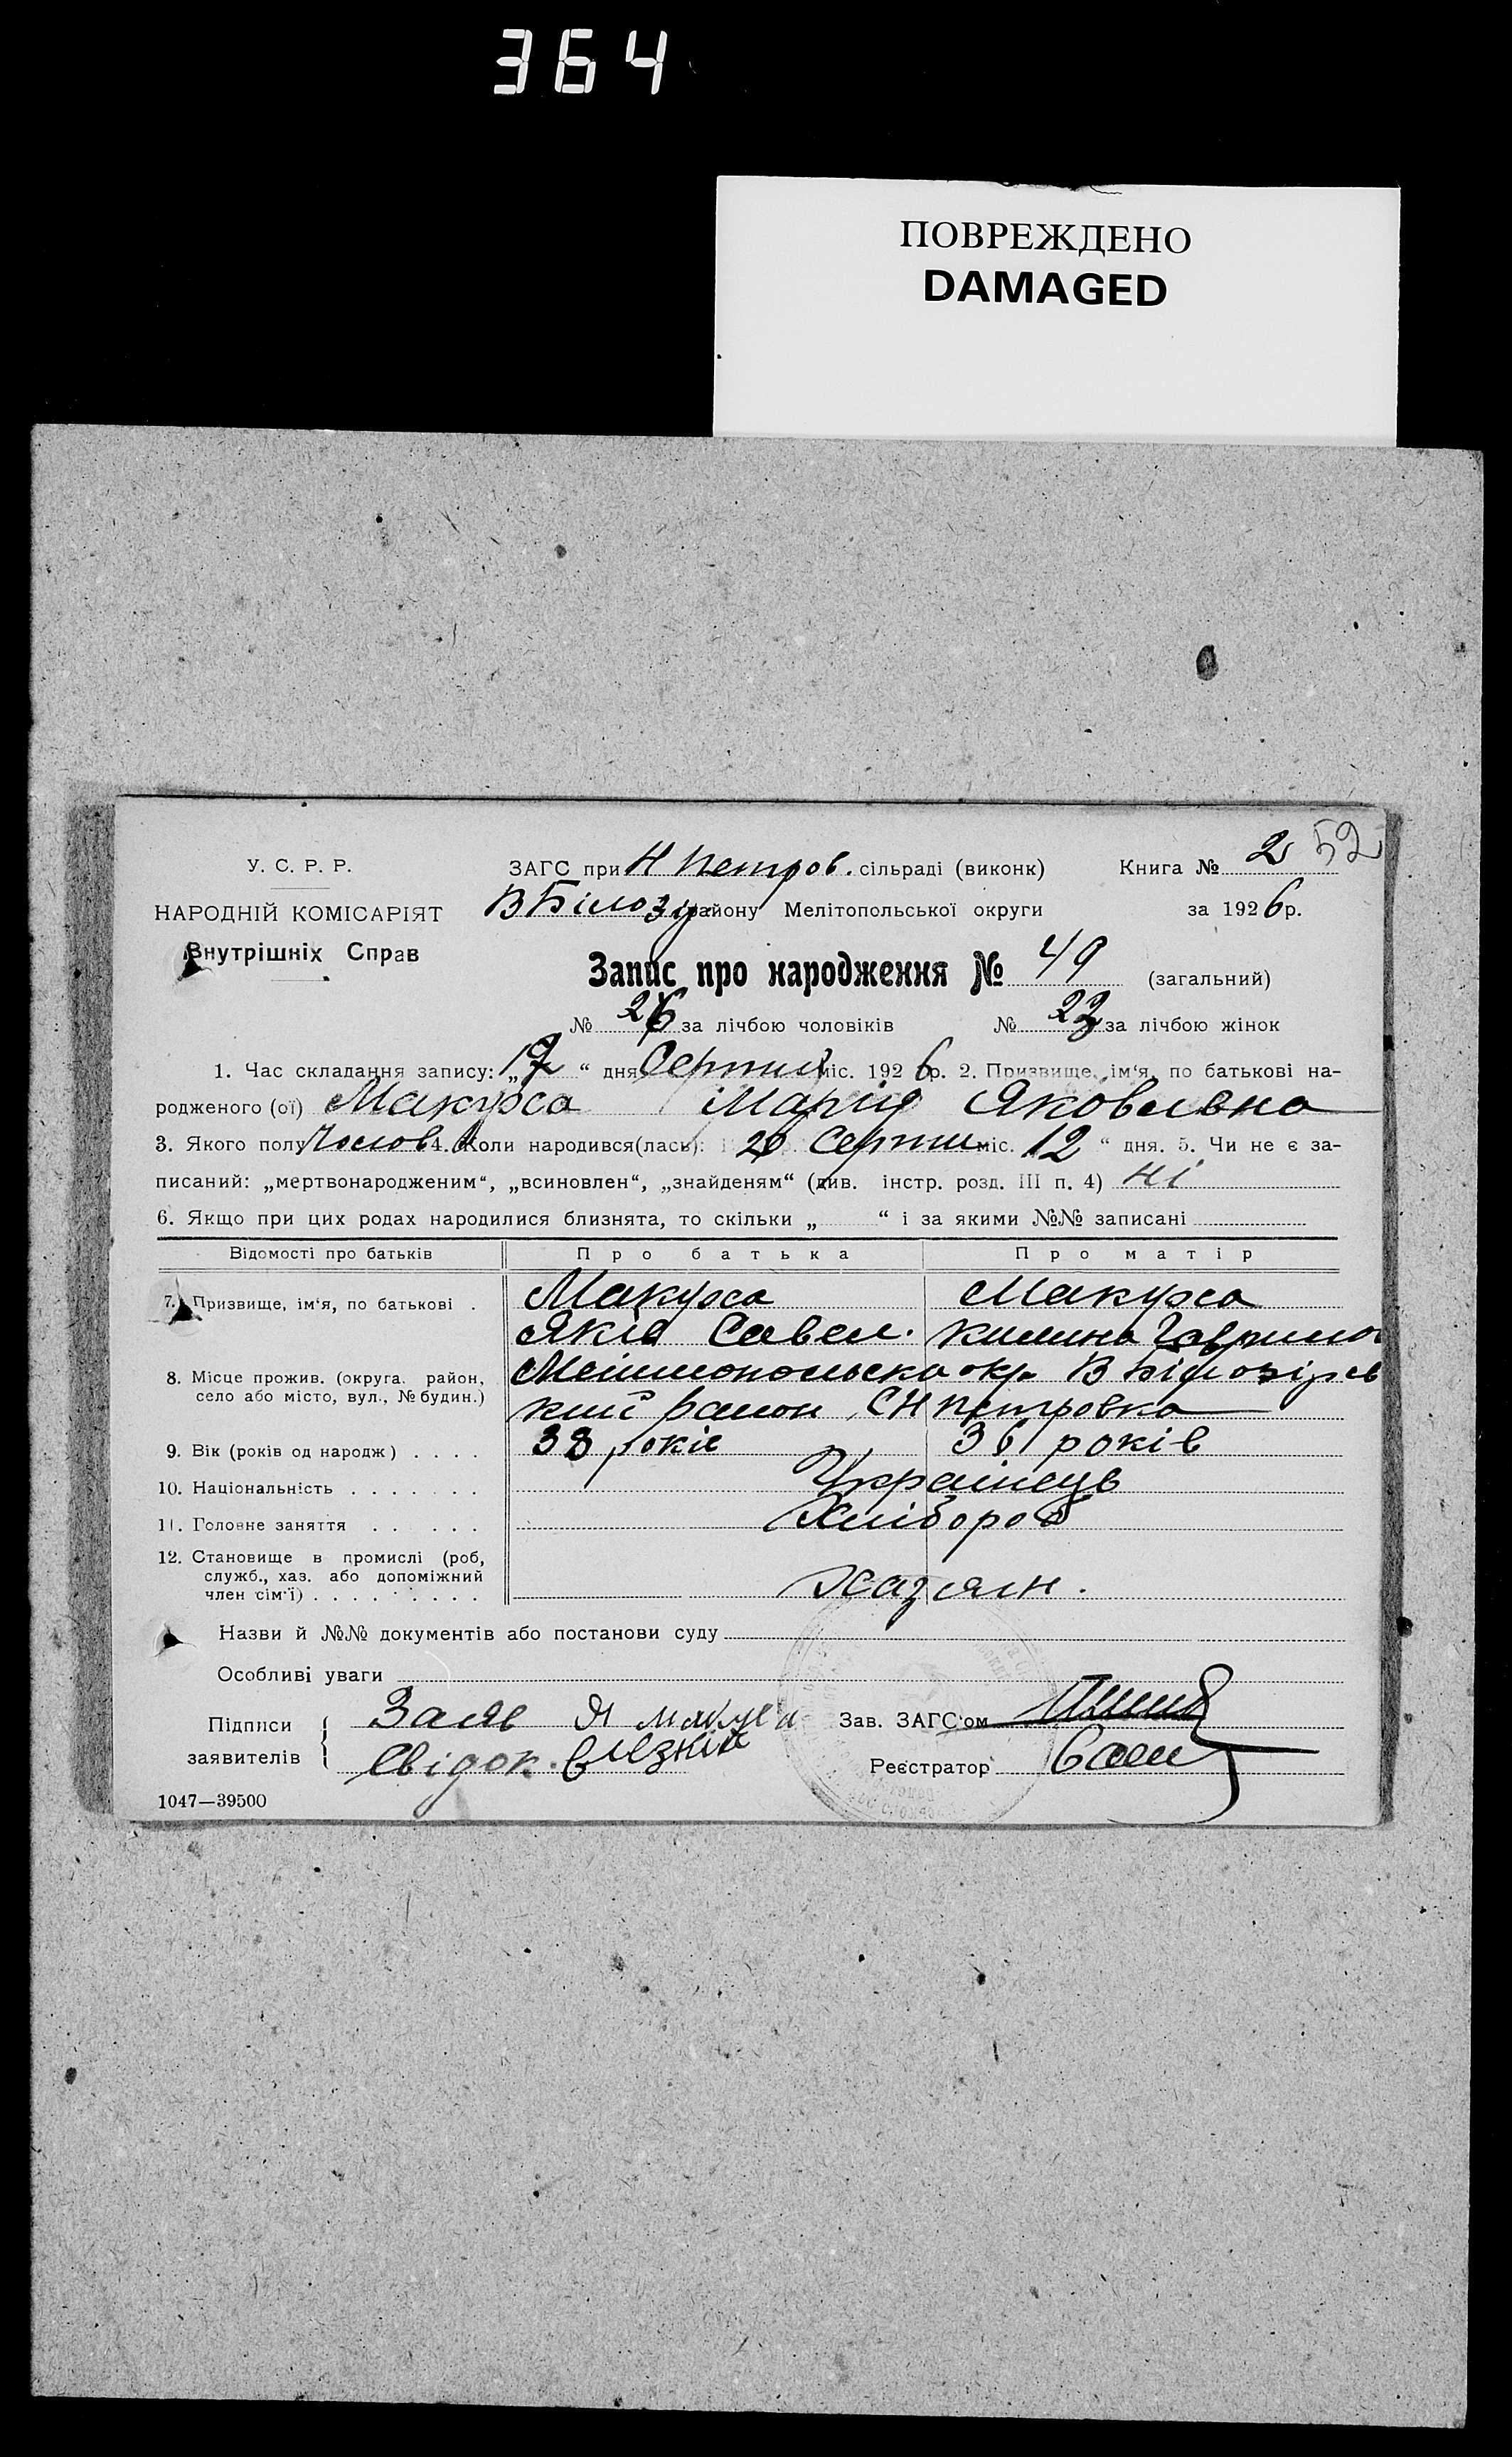 364
ПОВРЕЖДЕНО
DAMAGED
У. С. Р. Р.
НАРОДНІЙ КОМІСАРІЯТ
Внутрішніх Справ
ЗАГС при Н Петров. сільраді (виконк)
В Білозу району Мелітопольської округи
Книга № 2 52
за 1926 р.
Запис про народження № 49 (загальний)
№ 26 за лічбою чоловіків № за лічбою жінок
1. Час складання запису: „ “ дня Серпня міс. 1926 р. 2. Призвище, ім‘я, по батькові на-
родженого (ої) Макуха Марія Яковлівна
3. Якого полу Чолов 4. Коли народився(лась): Серпня міс. 12 “ дня. 5. Чи не є за-
писаний: „мертвонародженим“, „всиновлен“, „знайденям“ (див. інстр. розд. III п. 4) Ні
6. Якщо при цих родах народилися близнята, то скільки „ “ і за якими №№ записані
Відомості про батьків П р о б а т ь к а П р о м а т і р
7. Призвище, ім‘я, по батькові . Макуха Макуха
Яків Савел. Килина
8. Місце прожив. (округа, район,
село або місто, вул., № будин.)
Мелітопольська окр. В Білозірсь
кий район С Н Петровка
9. Вік (років од народж) . . . . 38 років 36 років
10. Національність . . . . . . . Українець
11. Головне заняття . . . . . Хлібороб
12. Становище в промислі (роб,
служб., хаз. або допоміжний
член сім‘ї) . . . . . . . . . Хазяин.
Назви й №№ документів або постанови суду
Особливі уваги
Підписи
заявителів
Заяв Я
Свідок.
Зав. ЗАГС‘ом
Реєстратор
1047—39500